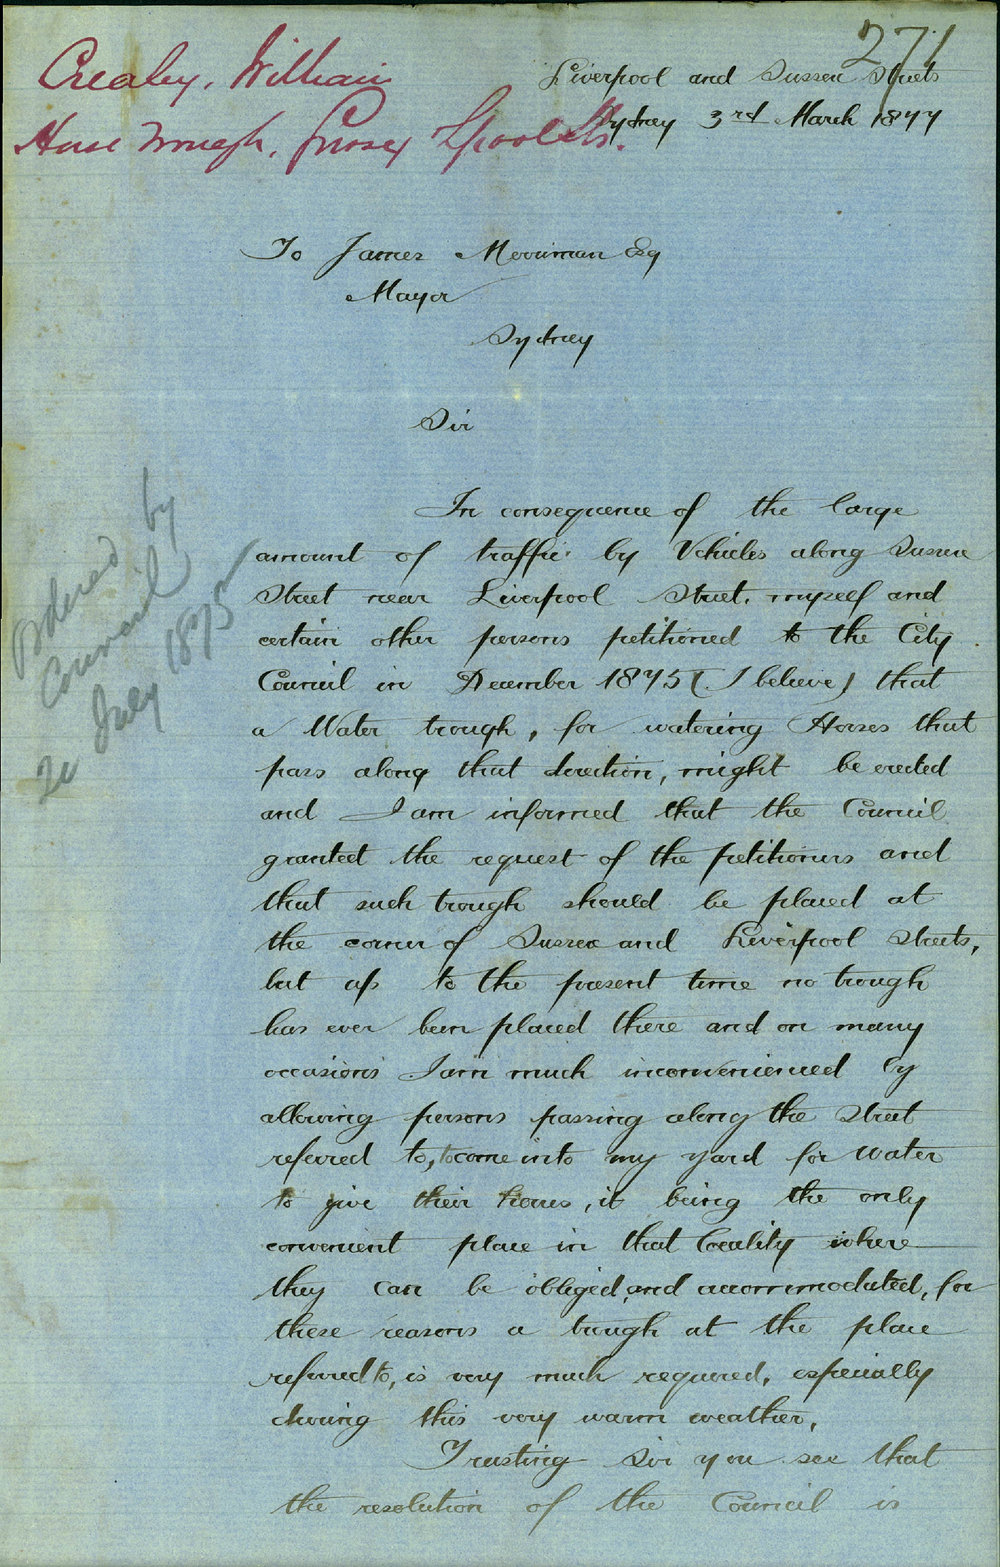 271
Crealey, William
Horse Trough, Sussex & Lpool Sts.
Liverpool and Sussex Streets
Sydney 3rd March 1877
To James Merriman Esq
Mayor
Sydney
Sir
In consequence of the large
amount of traffic by Vehicles along Sussex
Street near Liverpool Street, myself and
certain other persons petitioned to the City
Council in December 1875 (I believe) that
a Water trough, for watering Horses that
pass along that direction, might be erected
and I am informed that the Council
granted the request of the petitioners and
that such trough should be placed at
the corner of Sussex and Liverpool Streets,
but up to the present time no trough
has ever been placed there and on many
occasions I am much inconvenienced by
allowing persons passing along the Street
referred to, to come into my yard for water
to give their horses, it being the only
convenient place in that locality where
they can be obliged, and accommodated, for
these reasons a trough at the place
referred to, is very much required, especially
during this very warm weather.
Trusting Sir you see that
the resolution of the Council is
Ordered by
Council
20 July 1875